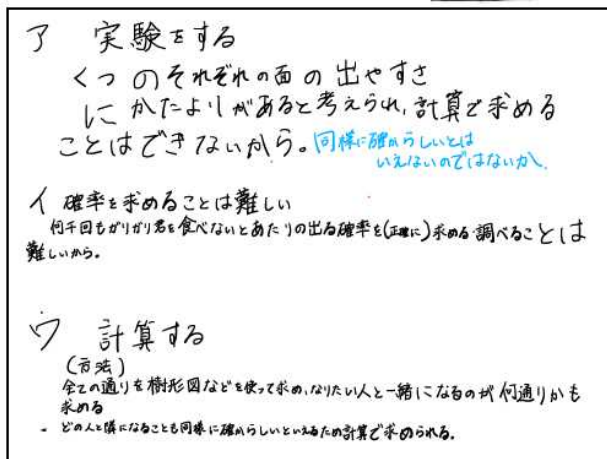 ア 実験をする
くつのそれぞれの面の出やすさ
にかたよりがあると考えられ、計算で求める
ことはできないから。同様に確からしいとは
いえないのではないか。
イ 確率を求めることは難しい
何千回もガリガリ君を食べないとあたりの出る確率を(正確に)求める調べることは
難しいから。
ウ 計算する
(方法)
全ての通りを樹形図などを使って求め、なりたい人と一緒になるのが何通りかも
求める
・どの人と隣になることも同様に確からしいといえるため計算で求められる。